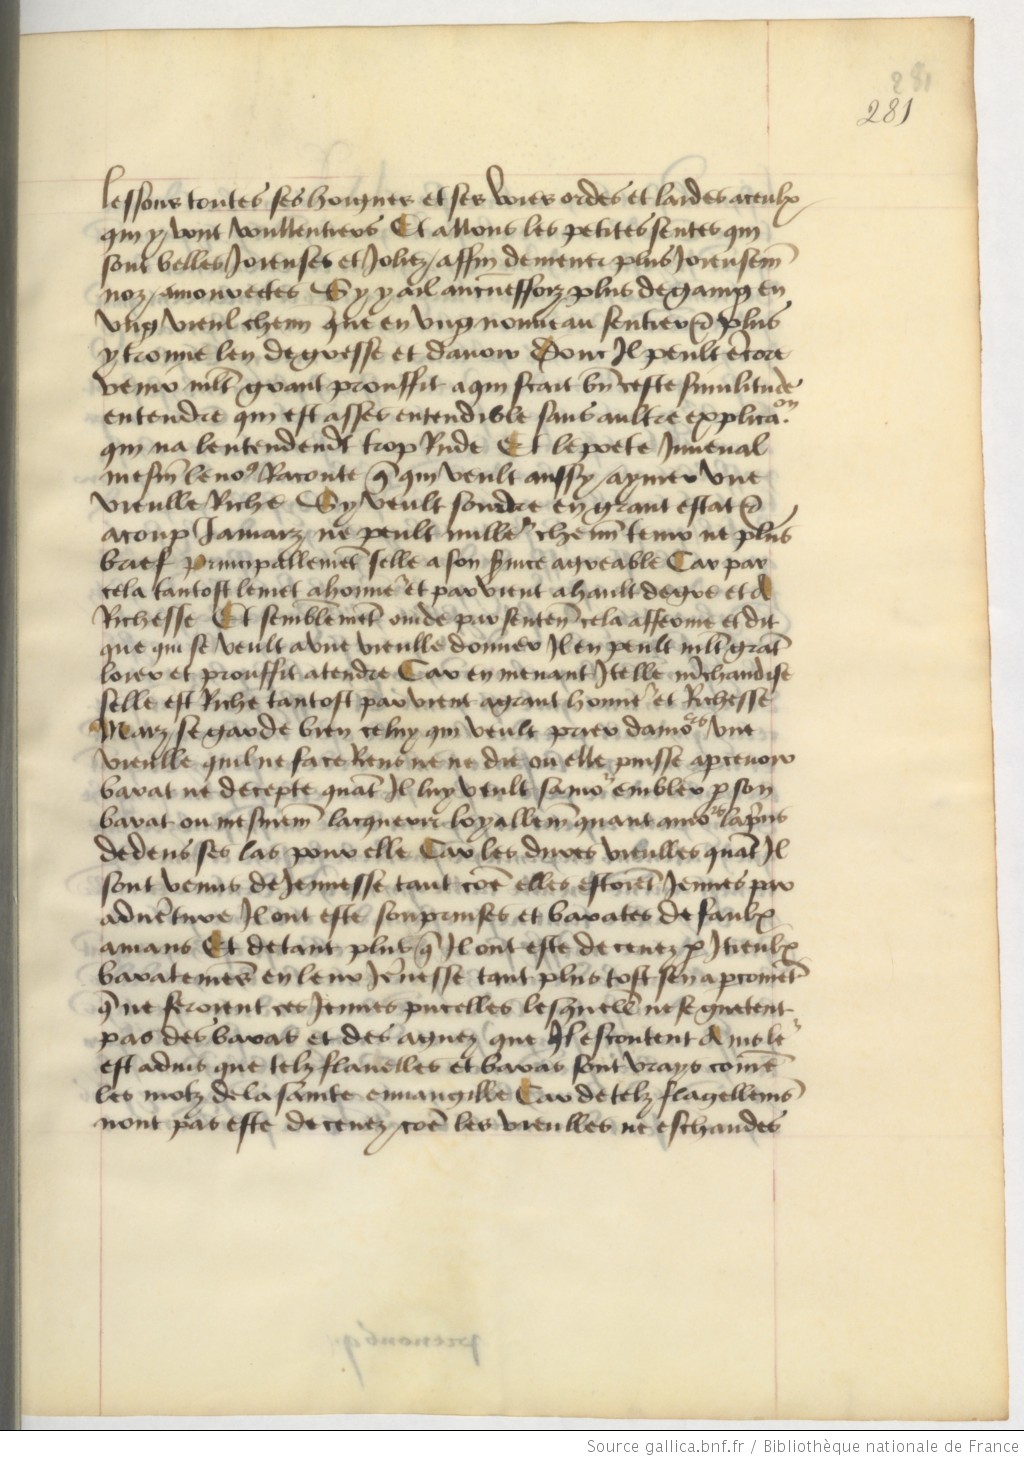 281
281
lessons toutes ses hongnes et ses voies ordes et laides a ceulx
qui y vont voullentiers Et allons les petites sentes qui
sont belles Joieuses et Joliez / affin de mener plus Joieusem̄
noz / amourectes Sy y a il aucuneffoiz plus de gaing en
vng vieul chemī que en vng nouueau sentier & plus
y trouue len de gresse et dauoir Dont Il peult ēcore
venir mlt̄ grant prouffit a qui scait bn̄ ceste similitude
entendre qui est asses entendible sans aultre explicaon.
qui na lentendendt̄ trop Rude Et le poete Juuenal
mesm̄ le no9 Raconte q̄ qui veult aussy / aymer vne
vieulle Riche Sy veult sourdre en grant estat &
a coup Jamaiz ne peult mille'r chemī tenir ne plus
brief principallemēt selle a son seruice agreable Car par
cela tantost le met a honneur et par vient a hault degre et a
Richesse Et semblemēt ouide par senten̄ cela afferme et dit
que qui se veult a vne vieulle donner Il en peult mlt̄ grāt
loier et prouffit atendre Car en menant Itelle mrchandise
selle est Riche tantost par vient a grant honneur et Richesse
Maiz / se garde bien celuy qui veult prier damors vne
vieulle quil ne face Riens ne ne die ou elle puisse apceuoir
barat ne decepte quāt Il luy veult samour embler p son
barat ou mesmem̄ lacquerir loyallem̄ quant amors la pris
dedens ses las pour elle Car les dures vieulles quāt Il
sont venus de Jeunesse tant cōe elles estoiēt Jeunes par
aduēture Il ont este sourprinses et barates de faulx
amans Et de tant plus q̄ Il ont este deceuez p Itieulx
baratemēs en leur Jeunesse tant plus tost sen apcoiuēt
q̄ ne feroient ces Jeunes pucelles lesquell̄ ne se guetent
pas des baras et des aguez que Il escontent Ains leur
est aduis que telz flauelles et baras sont vrays cōme
les motz de la sainte euuangille Car de telz flagellemēs
nont pas este deceuez / cōe les vieulles ne eschaudes
Source gallica.bnf.fr / Bibliothèque nationale de France